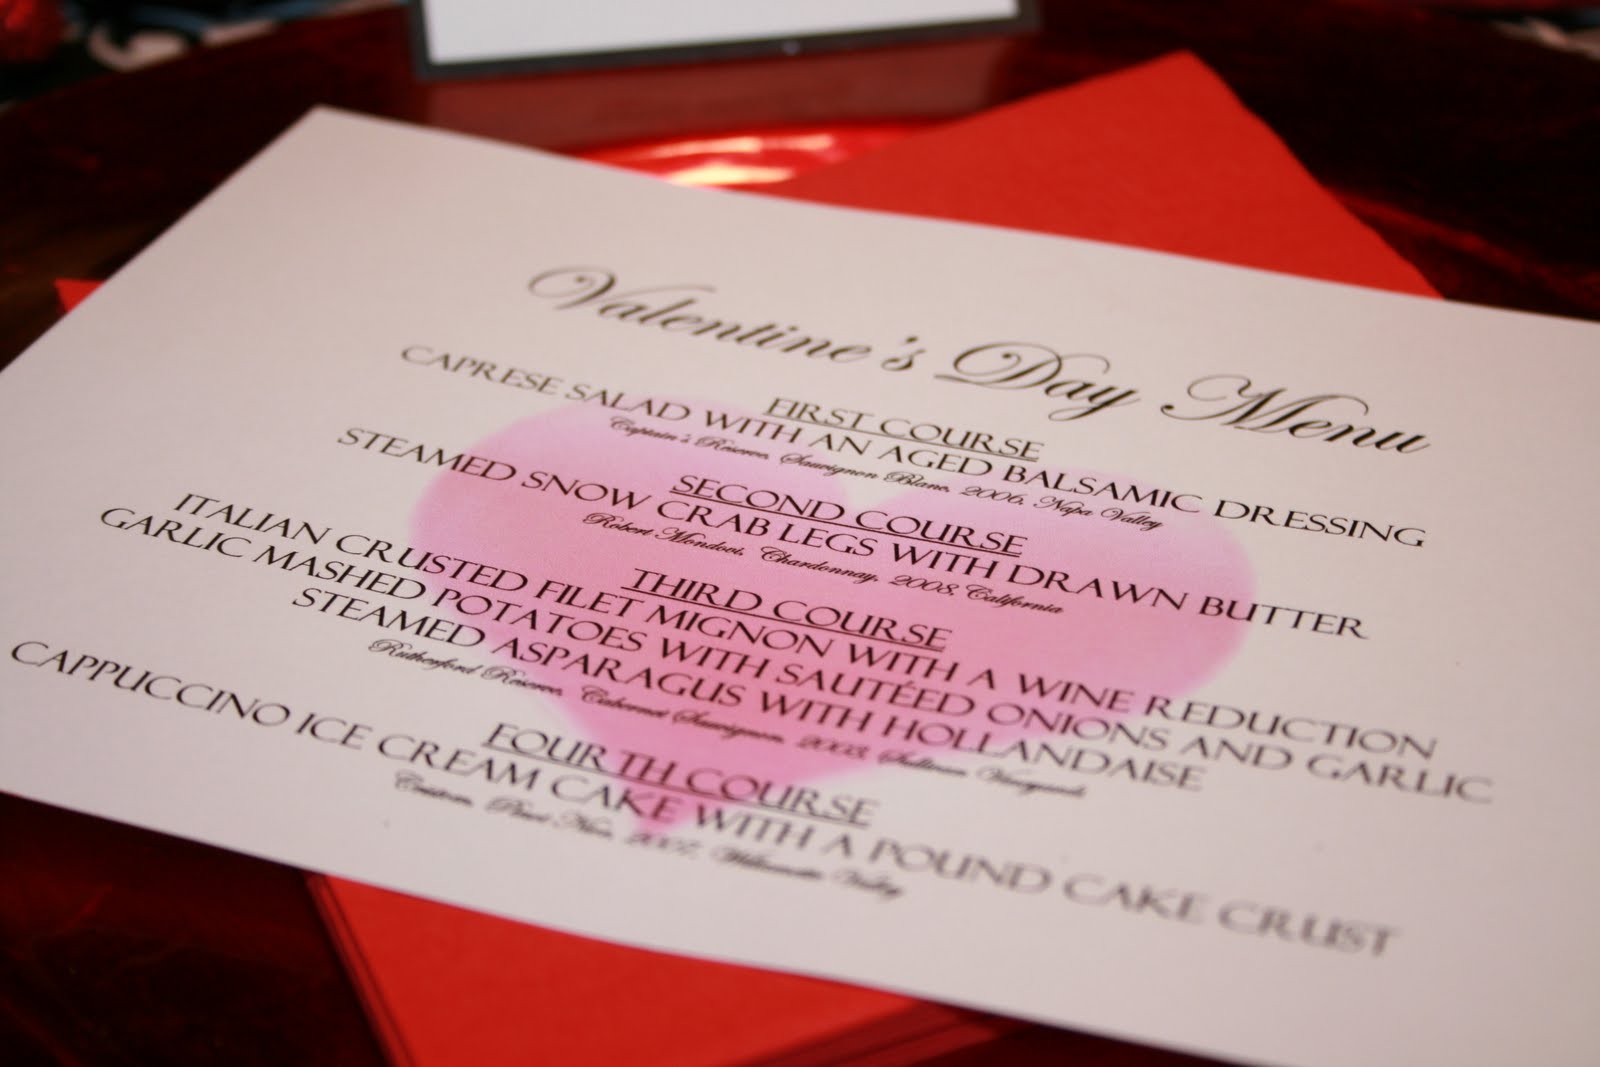 Valentine's Day Menu
FIRST COURSE
CAPRESE SALAD WITH AN AGED BALSAMIC DRESSING
Captain's Reserve, Sauvignon Blanc, 2006, Napa Valley
SECOND COURSE
STEAMED SNOW CRAB LEGS WITH DRAWN BUTTER
Robert Mondovi, Chardonnay, 2008, California
THIRD COURSE
ITALIAN CRUSTED FILET MIGNON WITH A WINE REDUCTION
GARLIC MASHED POTATOES WITH SAUTÉED ONIONS AND GARLIC
STEAMED ASPARAGUS WITH HOLLANDAISE
Rutherford Reserve, Cabernet Sauvignon, 2003, Sullivan Vineyards
FOURTH COURSE
CAPPUCCINO ICE CREAM CAKE WITH A POUND CAKE CRUST
Pinot Noir, 2007, Willamette Valley